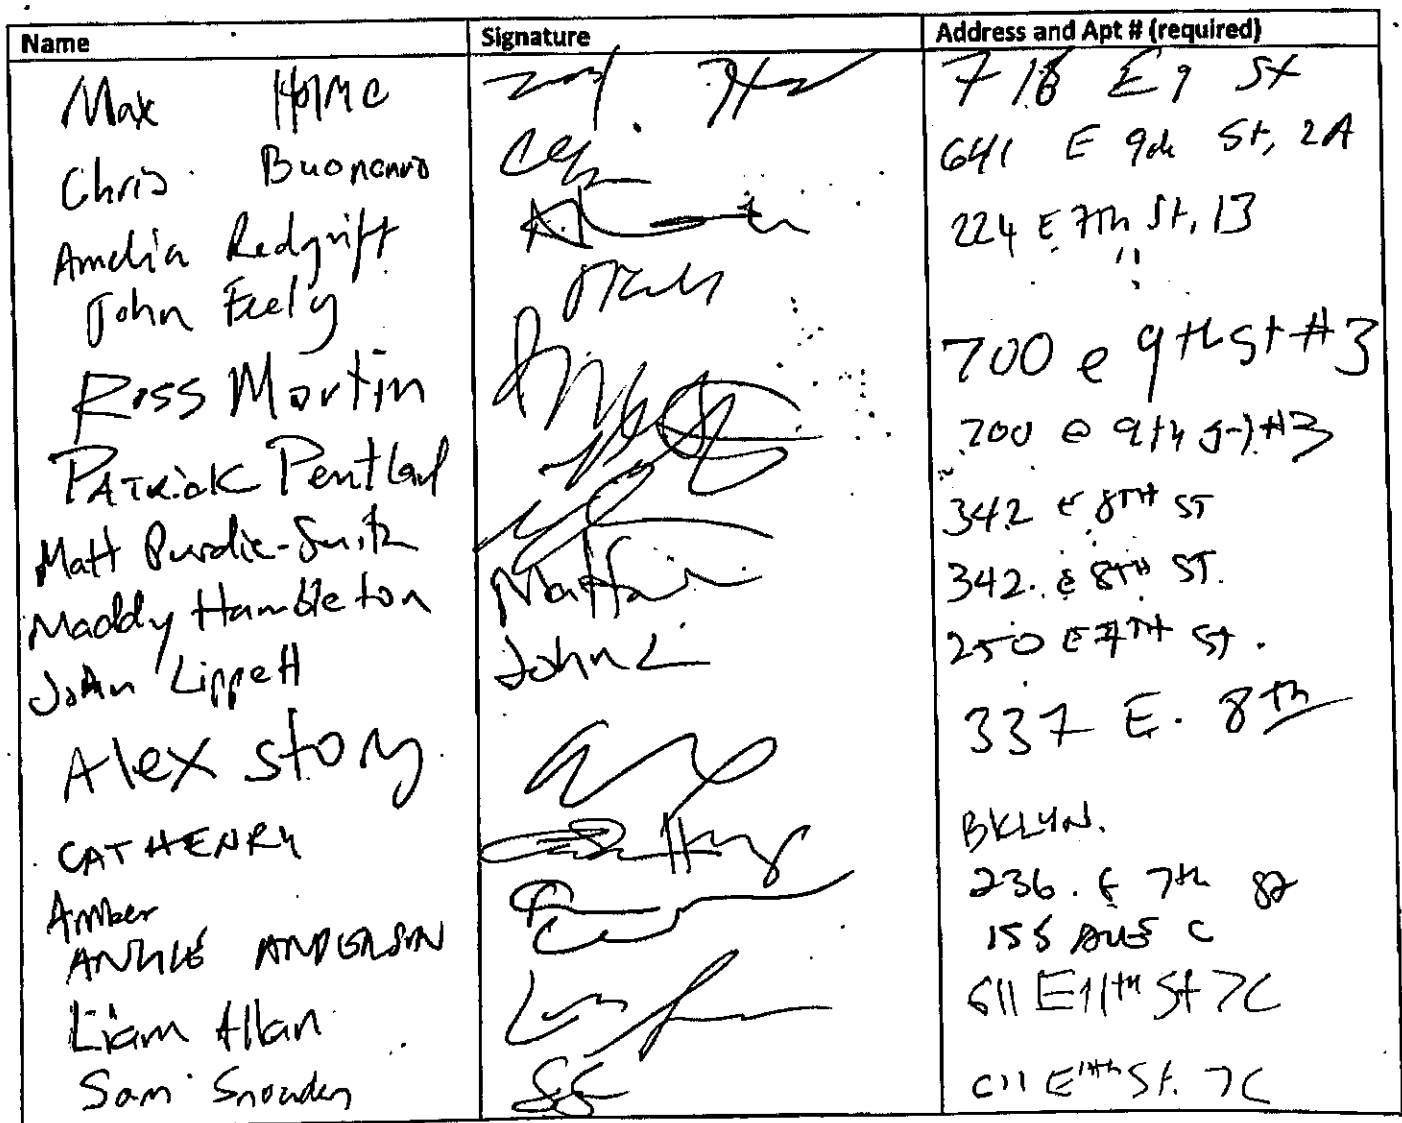 Name Signature Address and Apt # (required)
Max 718 E 9 St
Chris Buonanno 641 E 9th St, 2A
Amelia Redgrift 224 E 7th St, 13
John Feely "
Ross Martin 700 e 9th St #3
PATRICK Pentland 700 e 9th St #3
Matt Purdie-Smith 342 E 8TH ST
Maddy Hambleton 342. E 8TH ST.
John Lippett John L 250 E 7TH ST.
Alex Story 337 E. 8th
CAT HENRY BKLYN.
Amber 236. E 7th
ANGIE ANDERSON 155 AVE C
Liam Allan 611 E 11th St 7C
Sam Snowden SS 611 E 11th St. 7C